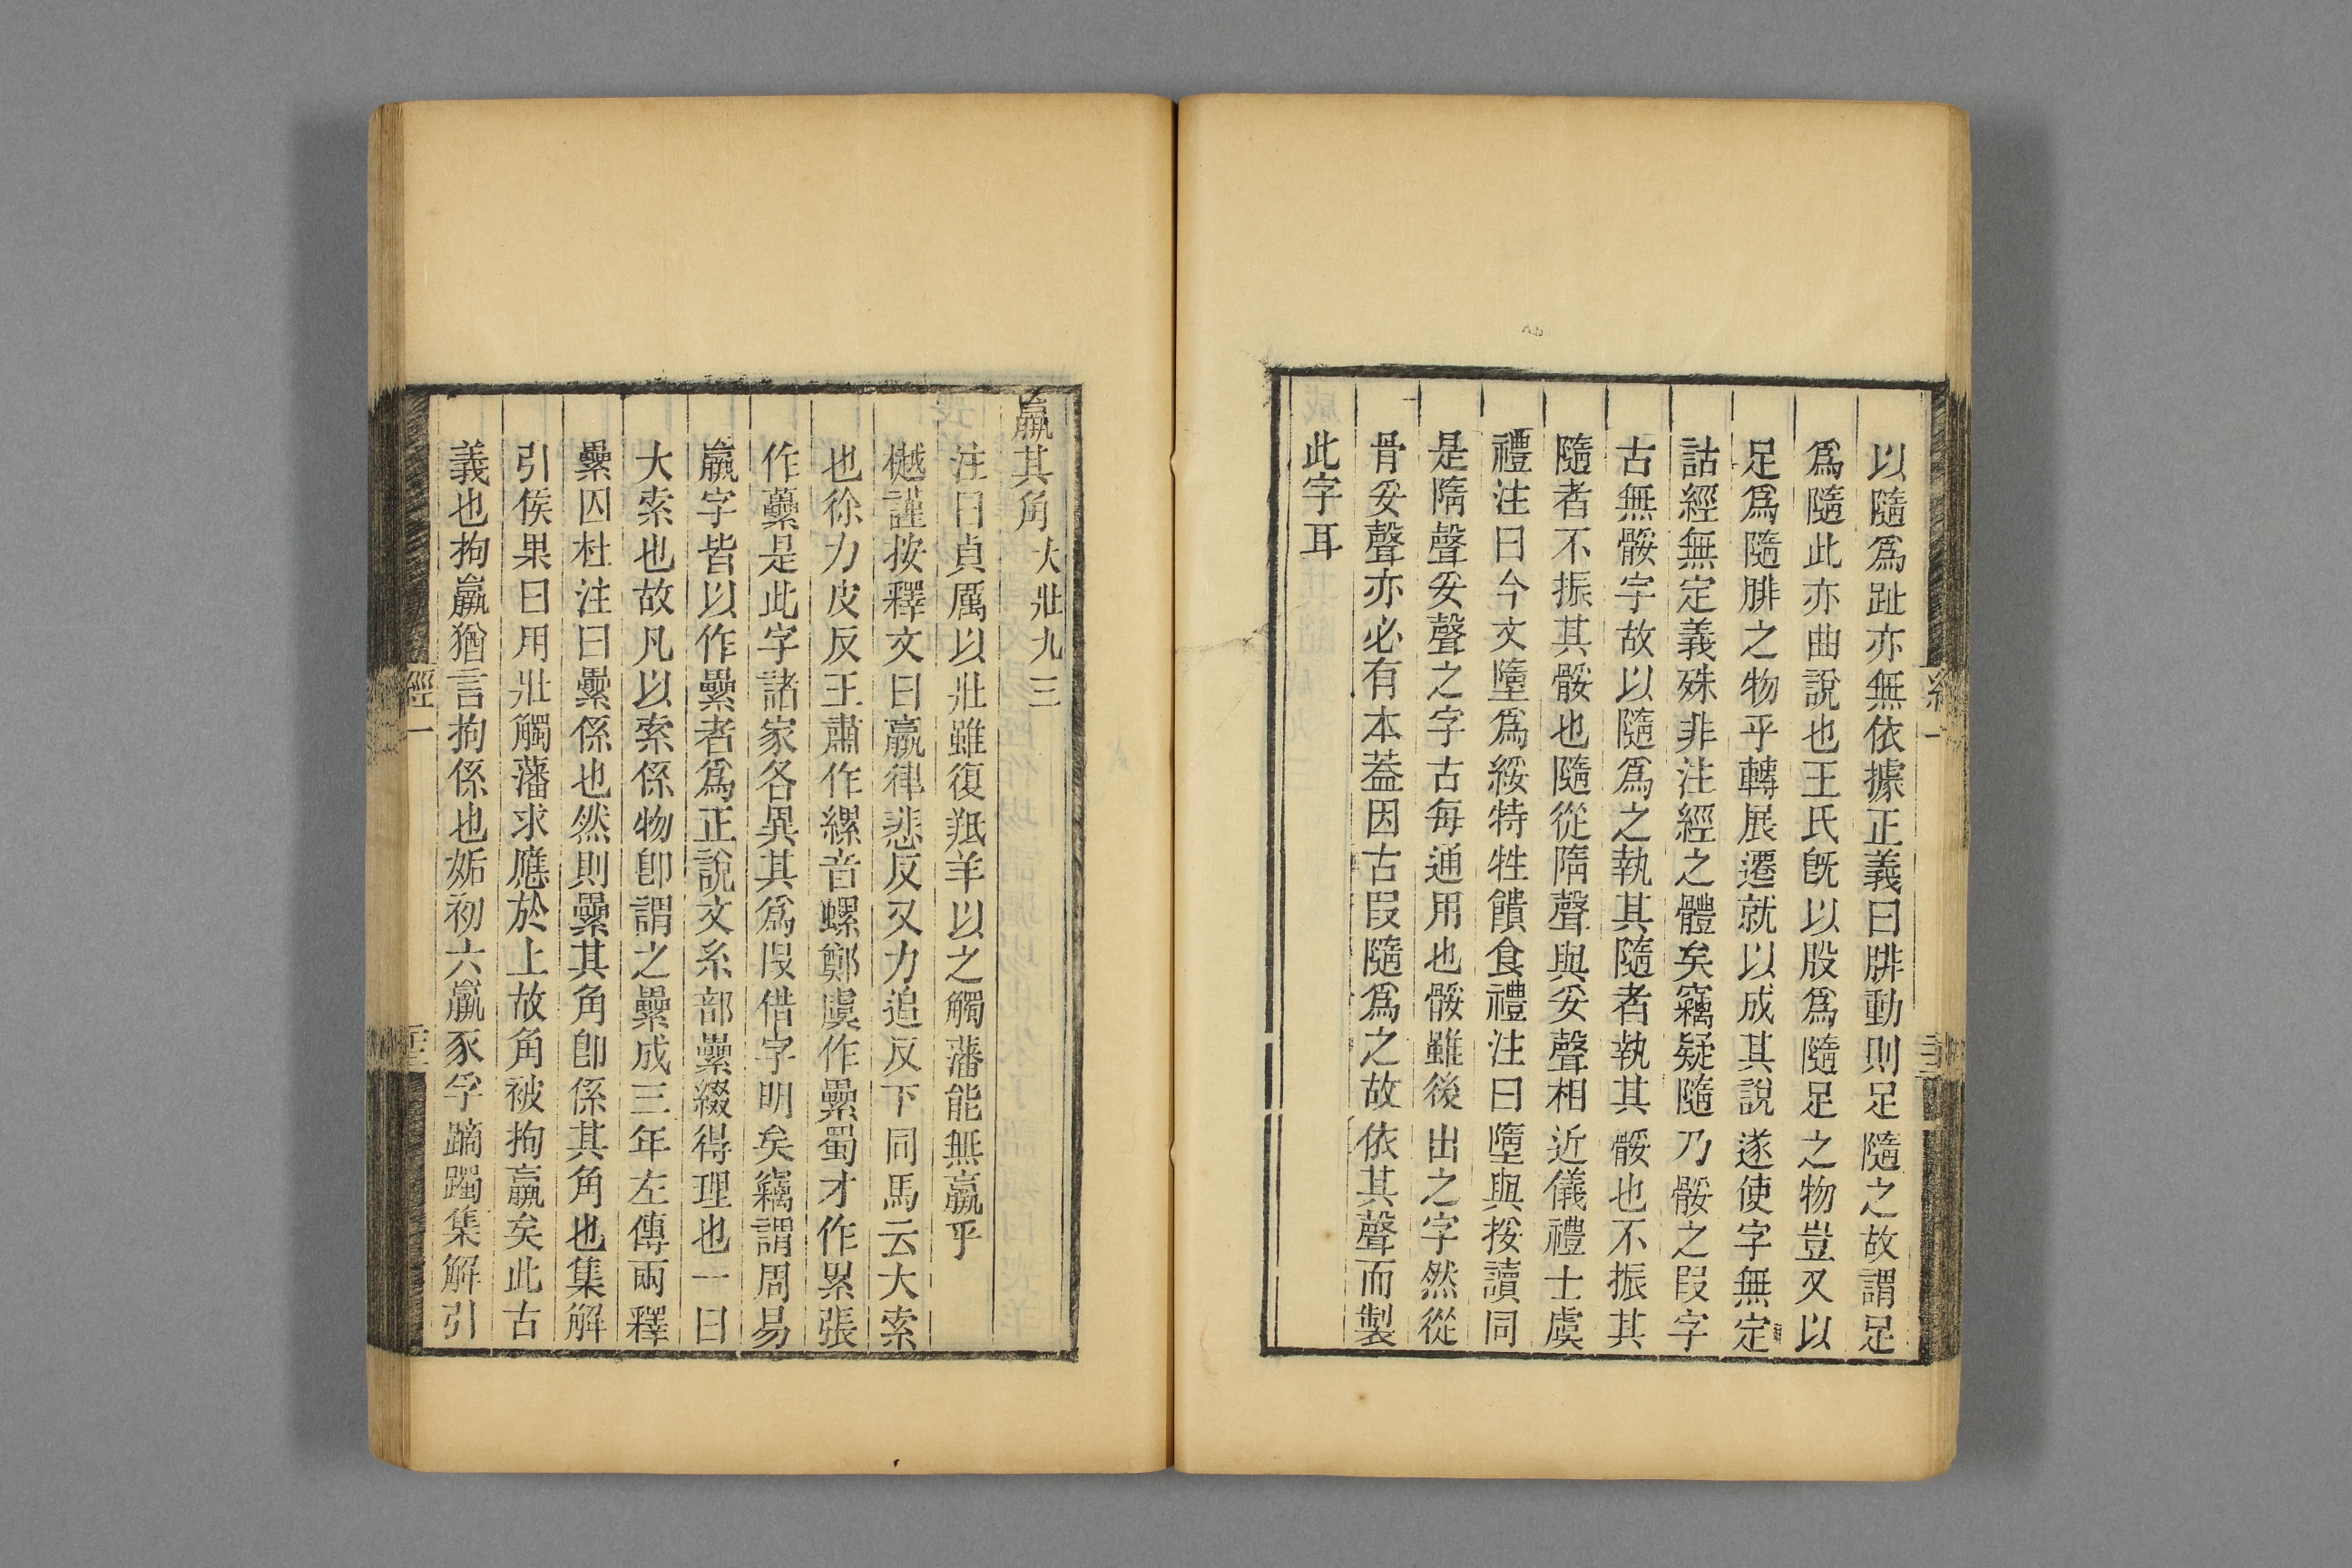 以隨爲趾亦無依據正義曰腓動則足隨之故謂足
爲隨此亦曲說也王氏旣以股爲隨足之物豈又以
足爲隨腓之物乎轉展遷就以成其說遂使字無定
詁經無定義殊非注經之體矣竊疑隨乃骽之叚字
古無骽字故以隨爲之執其隨者執其骽也不振其
隨者不振其骽也隨從隋聲與妥聲相近儀禮士虞
禮注曰今文墮爲綏特牲饋食禮注曰墮與挼讀同
是隋聲妥聲之字古每通用也骽雖後出之字然從
骨妥聲亦必有本葢因古叚隨爲之故依其聲而製
此字耳
羸其角 大壯九三
注曰貞厲以壯雖復羝羊以之觸藩能無羸乎
樾謹按釋文曰羸律悲反又力追反下同馬云大索
也徐力皮反王肅作縲音螺鄭虞作纍蜀才作累張
作虆是此字諸家各異其爲叚借字明矣竊謂周易
羸字皆以作纍者爲正說文糸部纍綴得理也一曰
大索也故凡以索係物卽謂之纍成三年左傳兩釋
纍囚杜注曰纍係也然則纍其角卽係其角也集解
引侯果曰用壯觸藩求應於上故角被拘羸矣此古
義也拘羸猶言拘係也姤初六羸豕孚蹢躅集解引
經一